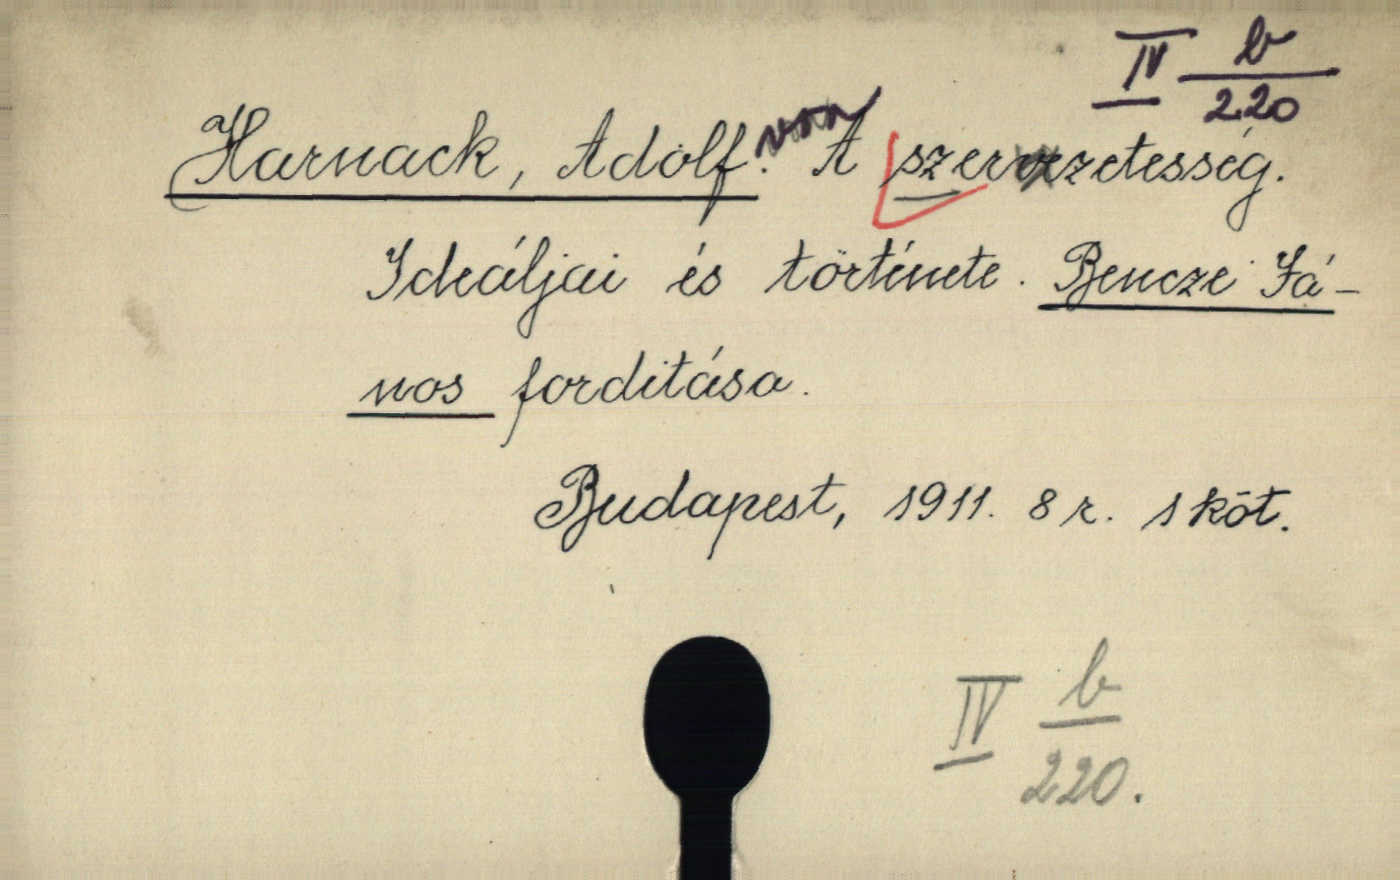 IV b/220
Harnack, Adolf. von A szerzetesség.
Ideáljai és története. Bencze Já-
nos forditása.
Budapest, 1911. 8 r. 1 köt.
IV b/220.